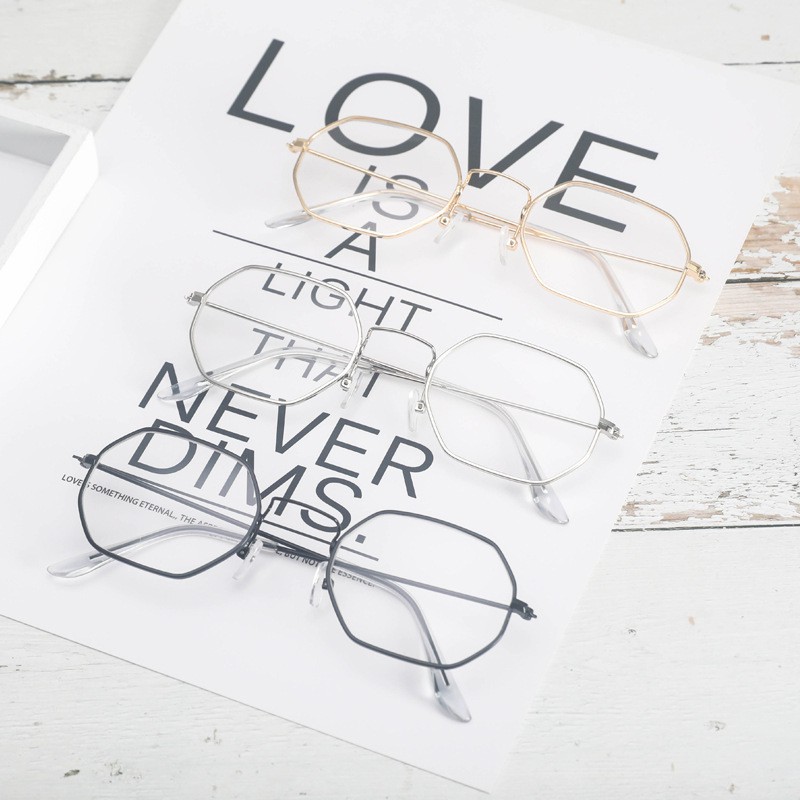 LOVE
IS
A
LIGHT
THAT
NEVER
DIMS.
LOVE IS SOMETHING ETERNAL., THE BUT NOT THE ESSENCE